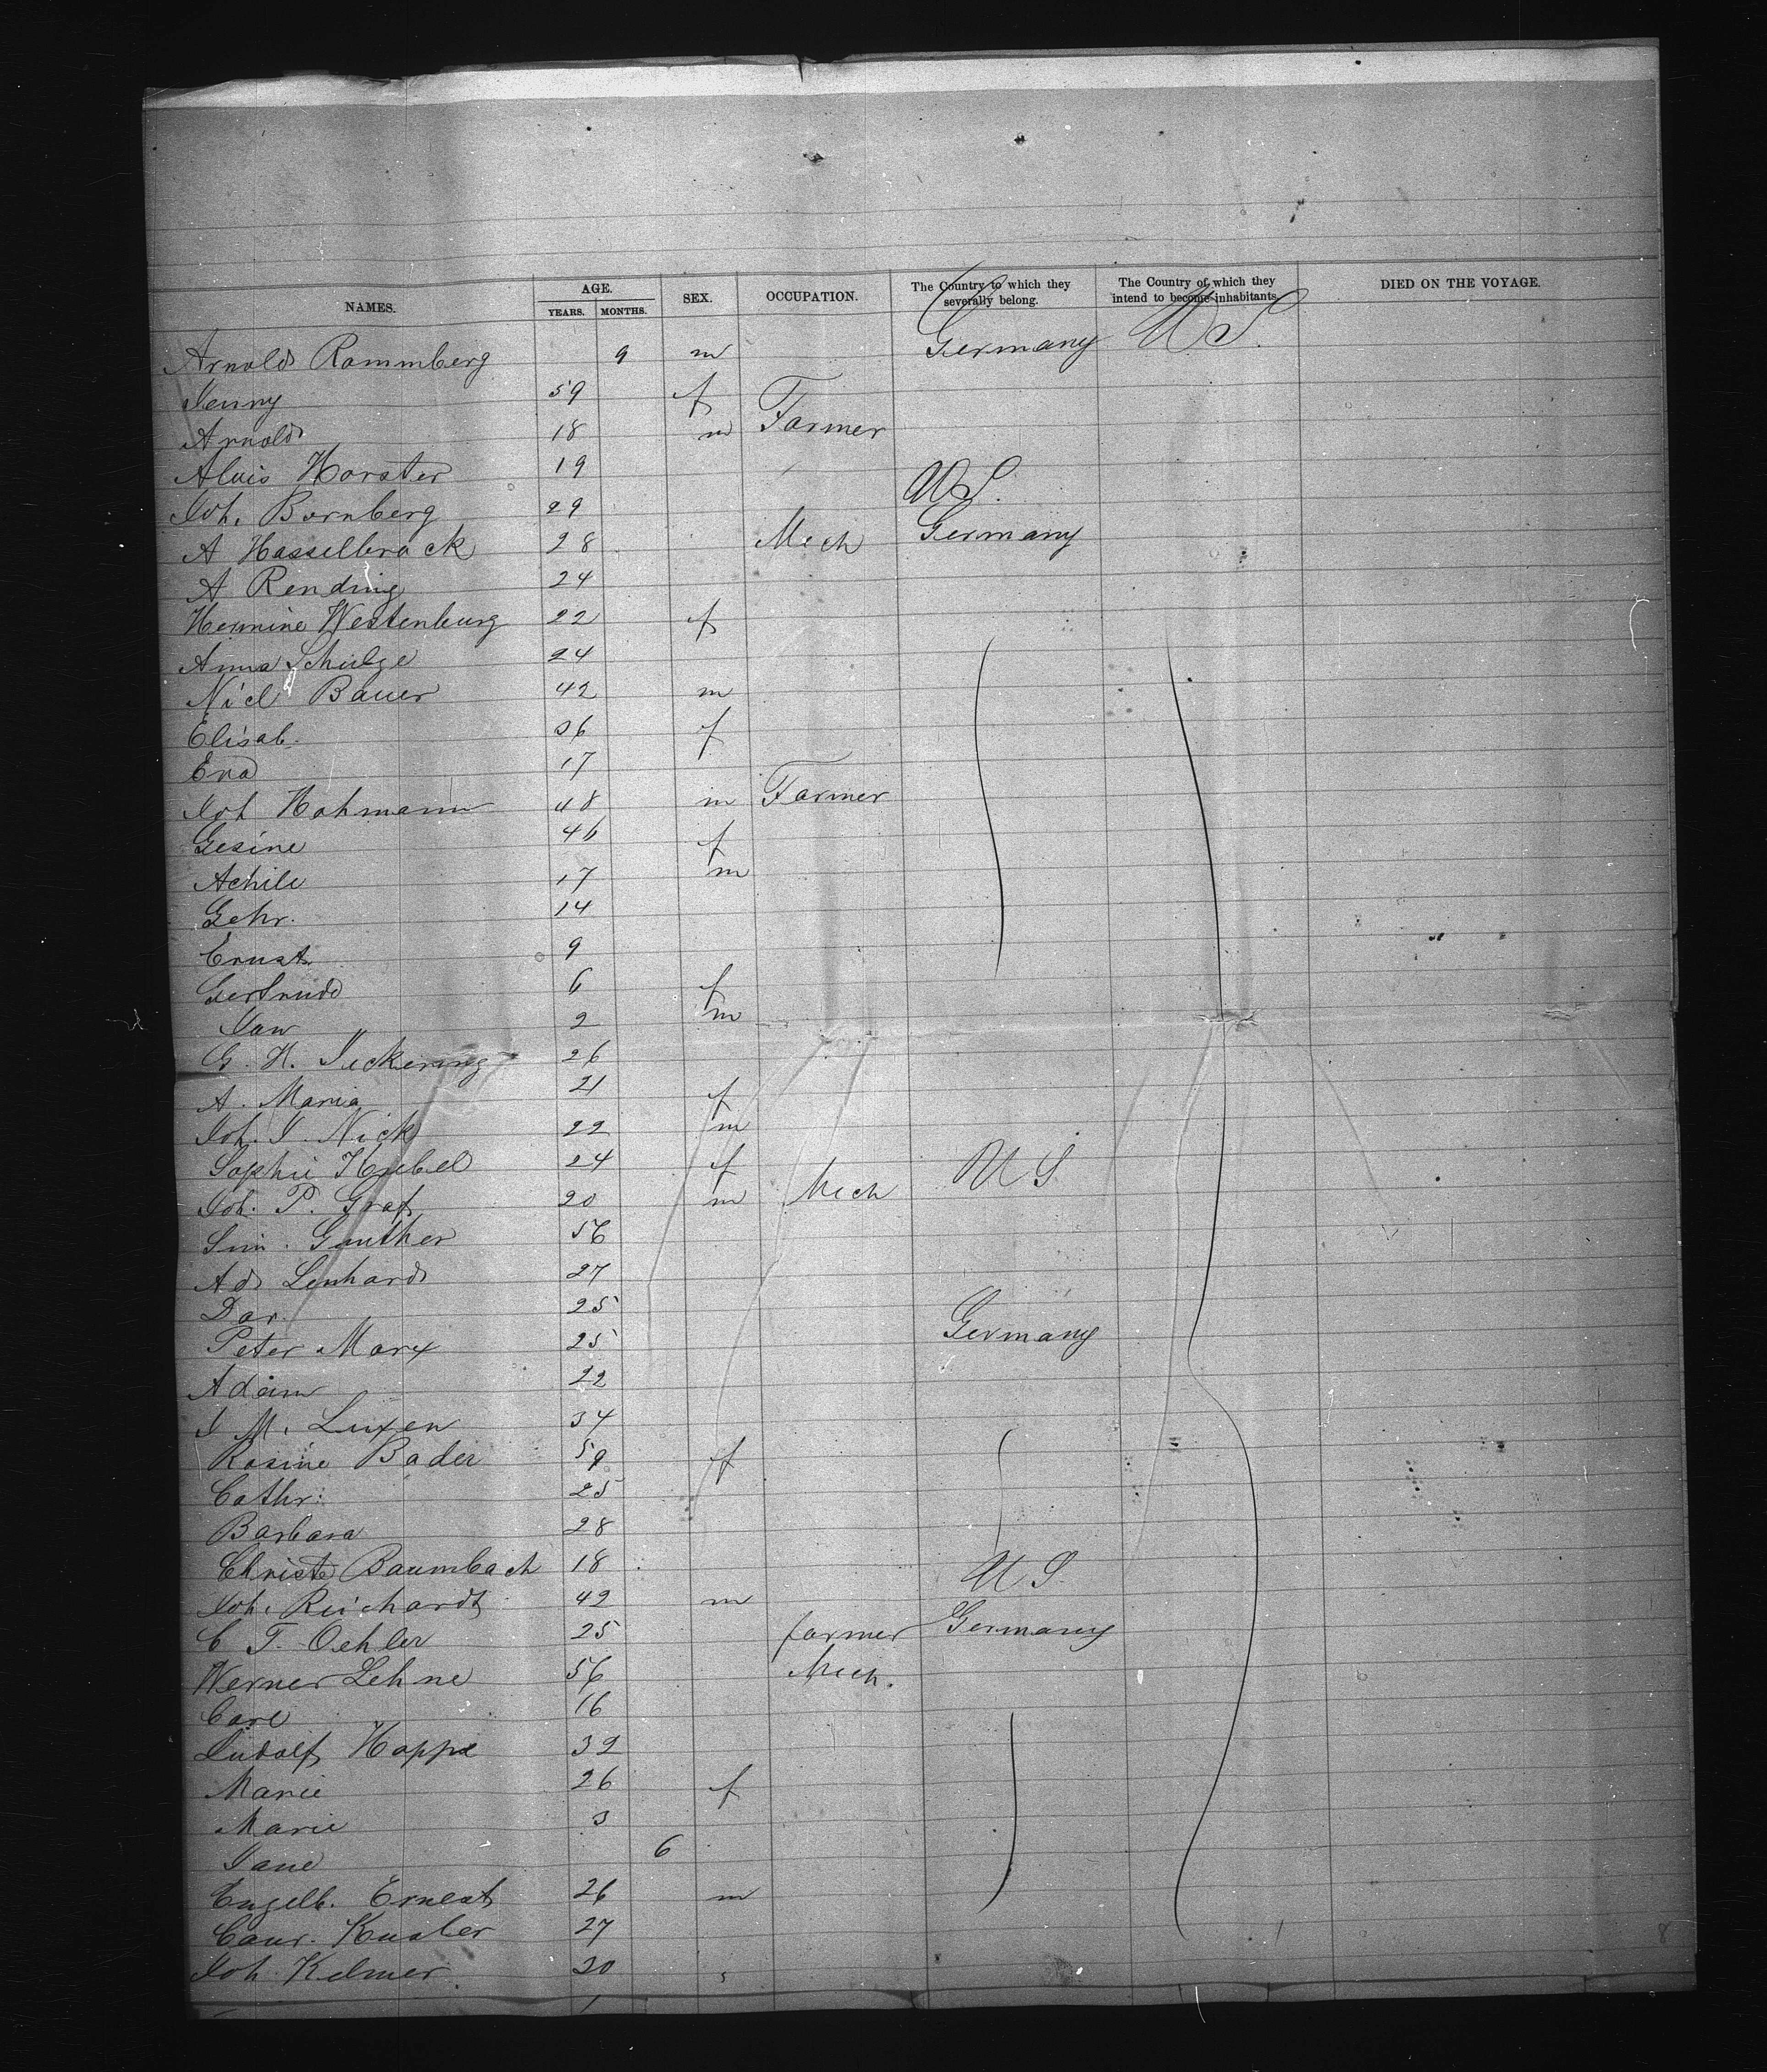 NAMES. AGE. YEARS. MONTHS. SEX. OCCUPATION. The Country to which they severally belong. The Country of which they intend to become inhabitants. DIED ON THE VOYAGE.
Arnold Rammberg 9 m Germany U S.
Jenny 59 f
Arnold 18 m Farmer
Alois Horster 19 U S.
Joh. Bornberg 29
A Hasselbrock 28 Mech Germany
A Rending 24
Hermine Westenburg 22 f
Anna Schulze 24
Nicl Bauer 42 m
Elisab. 36 f
Eva 17
Joh Hohmann 48 m Farmer
Gesine 46 f
Achile 17 m
Gehr. 14
Ernst 9
Gertrude 6 f
Jan 2 m
G. H. 26
A. Maria 21 f
Joh. J. Nick 22 m
Sophie 24 f U S
Joh. P. Graf 20 m Mech
Sim. Gunther 56
Ad Lenhard 27
Dor. 25
Peter Marx 25 Germany
Adam 22
J M. Luxen 34
Rosine Bader 59 f
Cathr: 25
Barbara 28
Christe Baumbach 18 U S.
Joh. Reichardt 42 m
C F. Oehler 25 farmer Germany
Werner Lehne 56 Mech.
Carl 16
Ludolf Hoppe 32
Marie 26 f
Marie 3
Jane 6
Engelb. Ernest 26 m
27
Joh Kelmer 20
8